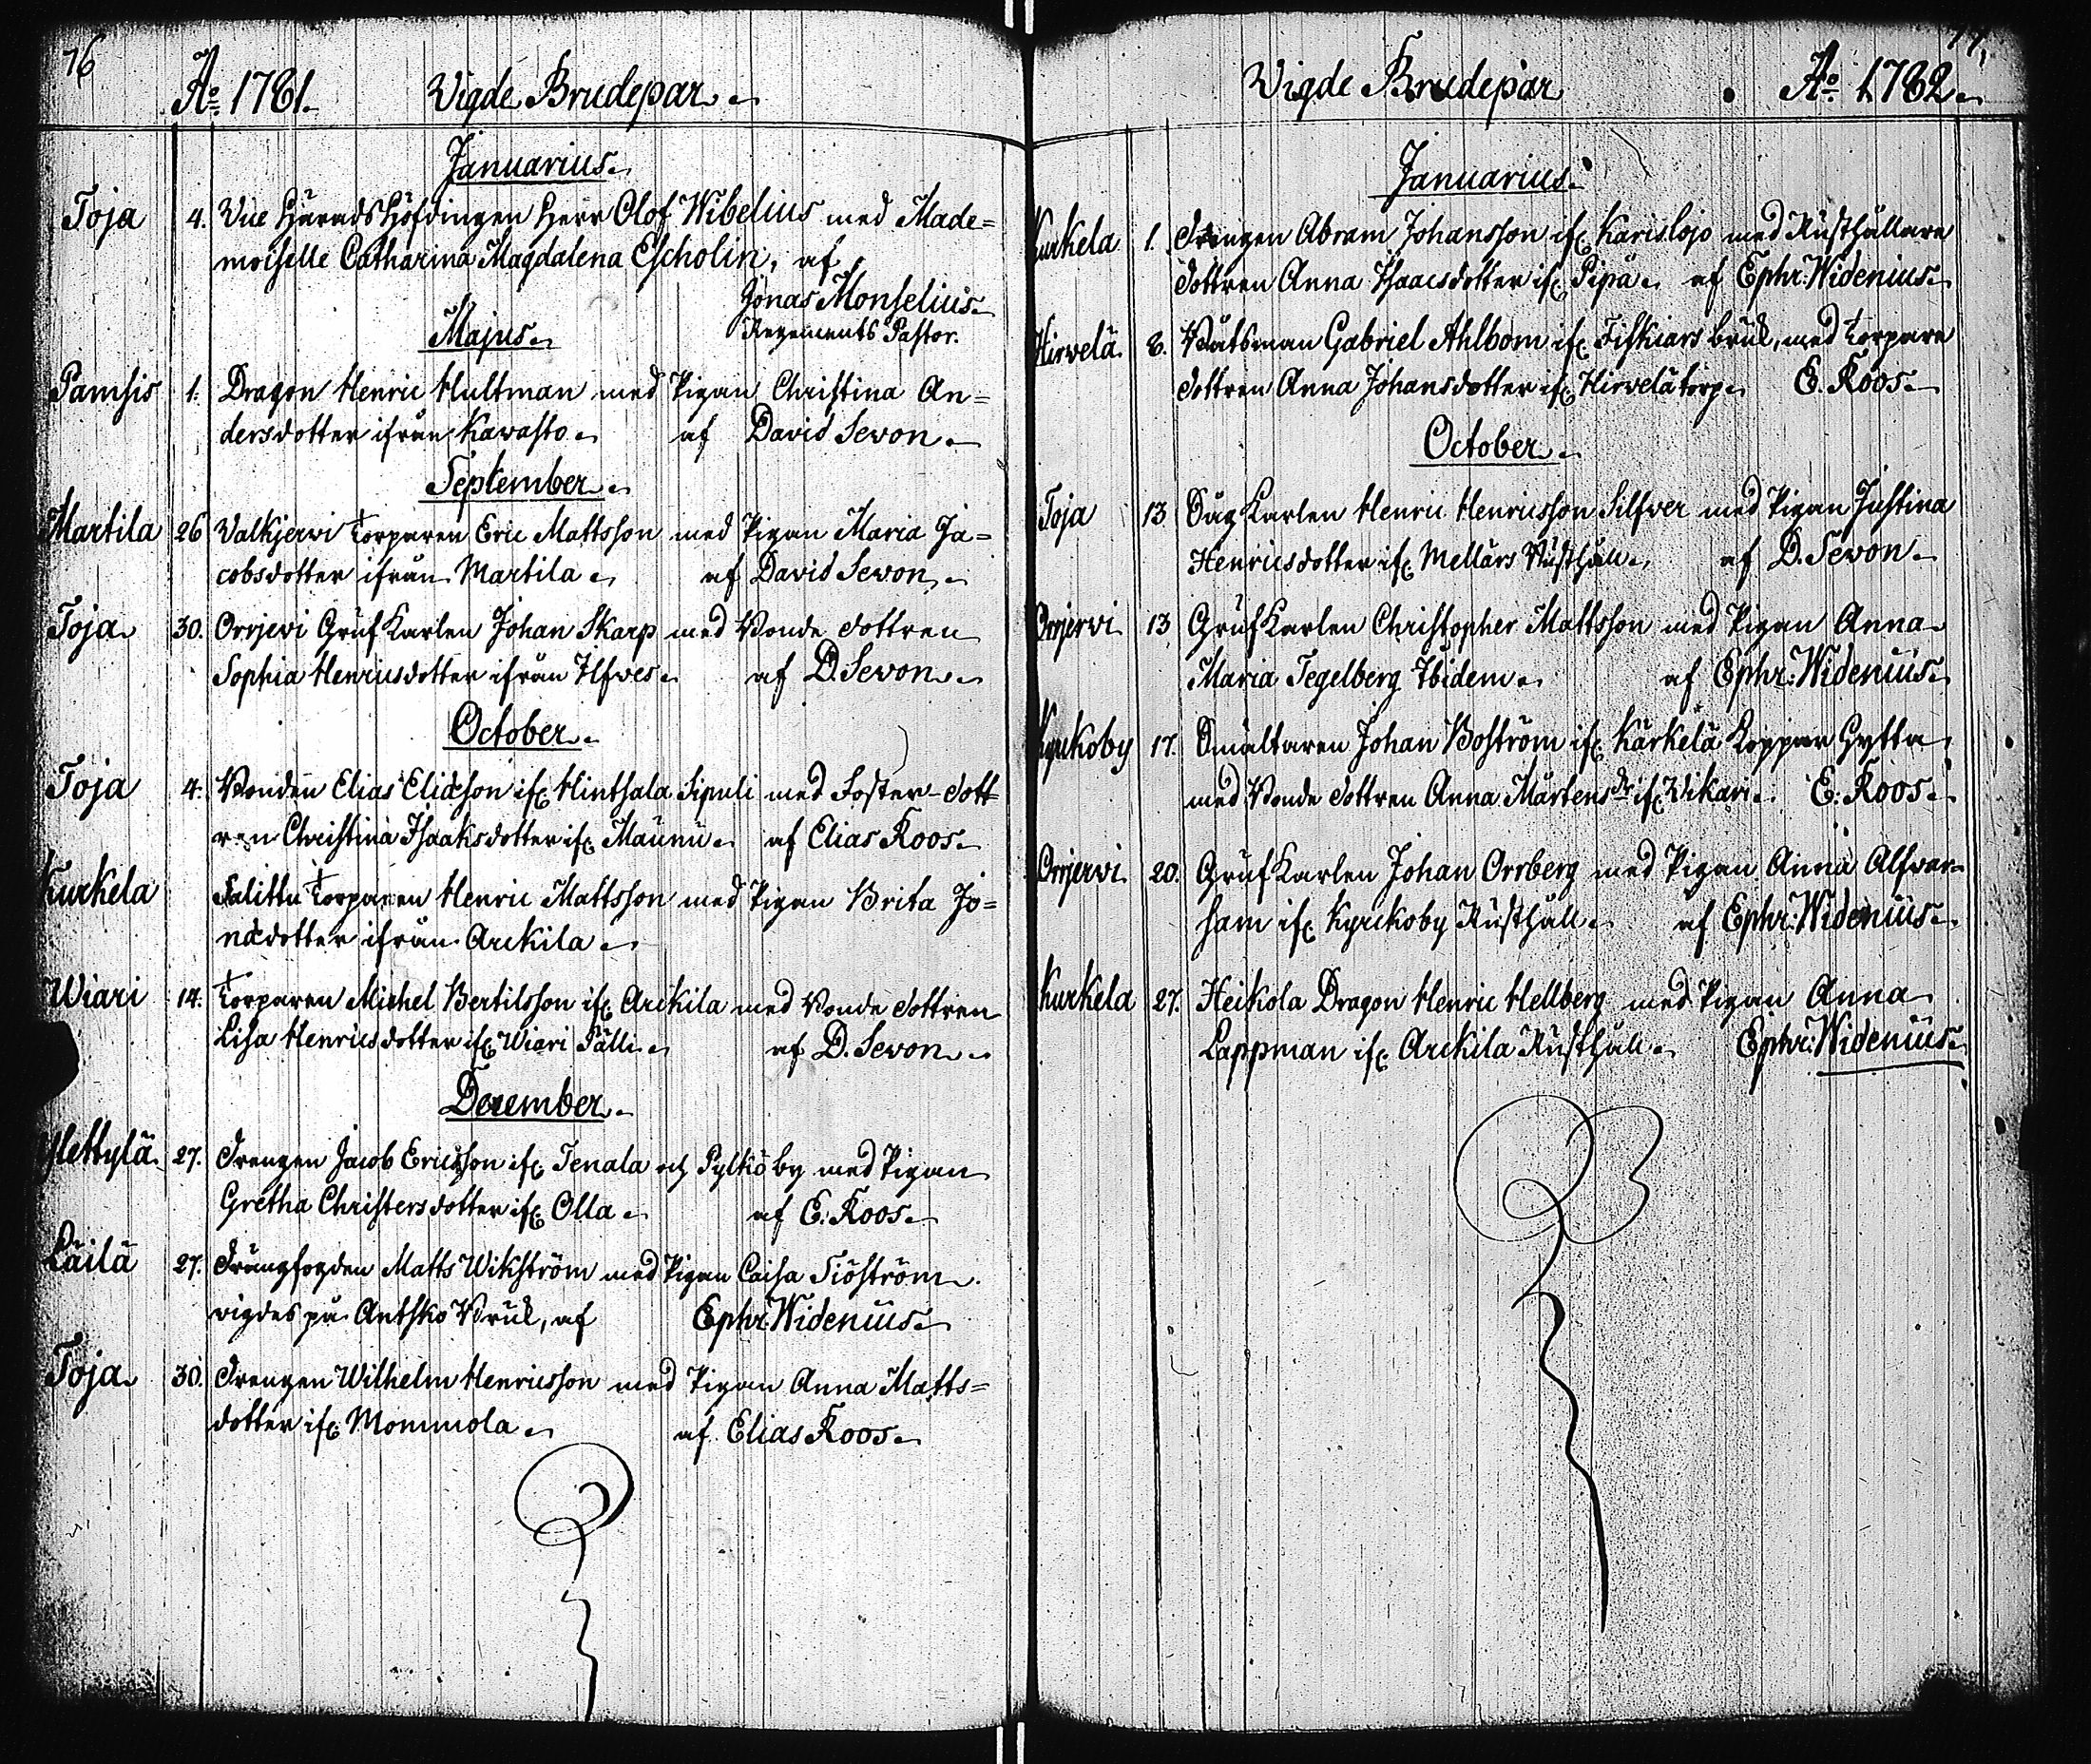 76
Ao 1781. Vigde Brudepar.
Januarius.
Toja 4. Vice HäradsHöfdingen Herr Olof Wibelius med Made=
moiselle Catharina Magdalena Escholin, af
Jonas Monselius.
Regements Pastor.
Majus.
Pamsis 1. Dragon Henric Hultman med Pigan Christina An=
dersdotter ifrån Kavasto. af David Sevon.
September.
Martila 26 Valkjervi Torparen Eric Mattsson med Pigan Maria Ja=
cobsdotter ifrån Martila. af David Sevon.
Toja 30. Orrjevi GrufKarlen Johan Skarp med Bonde dottren
Sophia Henricsdotter ifrån Ilfves. af D. Sevon.
October.
Toja 4. Bonden Elias Eliæson if: Hintsala Sipuli med Foster dott
ren Christina Isaaksdotter if: Maunu. af Elias Koos.
Kurkela Salittu Torparen Henric Mattsson med Pigan Brita Jo=
nædotter ifrån Arckila.
Wiari 14. Torparen Michel Bertilsson if: Arckila med Bonde dottren
Lisa Henricsdotter if: Wiari Pälli. af D. Sevon.
December.
Hettylä 27. Drengen Jacob Ericsson if: Tenala och Pylkö by med Pigan
Gretha Christersdotter if: Olla. af E. Koos.
Läilä 27. Drängfogden Matts Wikström med Pigan Caisa Siöström
vigdes på Antsko Bruk, af Ephr. Widenius.
Toja. 30. Drengen Wilhelm Henricsson med Pigan Anna Matts=
dotter if: Mommola. af Elias Koos.
77.
Vigde Brudepar Ao 1782.
Januarius.
Kurkela 1. Drengen Abram Johansson if: Karislojo med Rusthållare
dottren Anna Isaacsdotter if: Pipa. af Ephr: Widenius.
Hirvelä. 8. Båtsman Gabriel Ahlbom if: Fiskiars bruk, med Torpare
dottren Anna Johansdotter if: Hirvelä torp. E. Koos.
October.
Toja 13 Såg Karlen Henric Henricsson Silfver med Pigan Justina
Henricsdotter if: Mellārs Rusthåll. af D. Sevon.
Orrjervi 13 GrufKarlen Christopher Mattsson med Pigan Anna
Maria Tegelberg Ibidem. af Ephr: Widenius.
Kyrkoby 17. Smältaren Johan Boström if: Kärkelä Koppar Hytta,
med Bonde dottren Anna Mårtens dr if: Vikari. E. Koos.
Orrjervi 20. GrufKarlen Johan Orrberg med Pigan Anna Alfvar=
sam if: Kyrckoby Rusthåll. af Ephr: Widenius.
Kurkela 27. Heikola Dragon Henric Hellberg med Pigan Anna
Lappman if: Arckila Rusthåll. Ephr: Widenius.